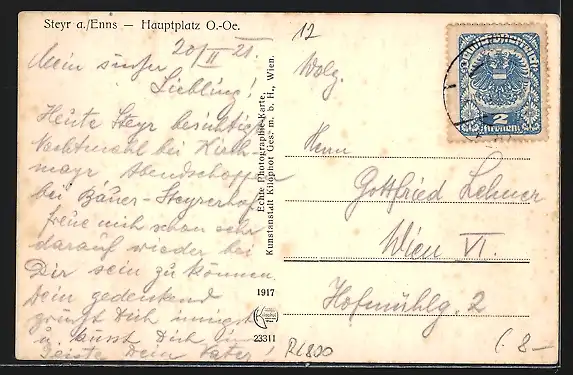 Steyr a./Enns — Hauptplatz O.-Oe.
20/II 21.
Mein süsser
Liebling!
Heute Steyr besichtigt
Nachtmahl bei Kirch-
mayr Abendschoppen
bei Bauer-Steyrerhof
freue mich schon sehr
darauf wieder bei
Dir sein zu können.
Dein gedenkend
grüsst Dich innigst
u. küsst Dich im
Geiste Dein Vater!
Echte Photographie-Karte.
Kunstanstalt Kilophot Ges. m. b. H., Wien.
1917
Kilophot
23311
12
Wolg.
Herrn
Gottfried Lehner
Wien VI.
Hofmühlg. 2
2
Kronen
(8-